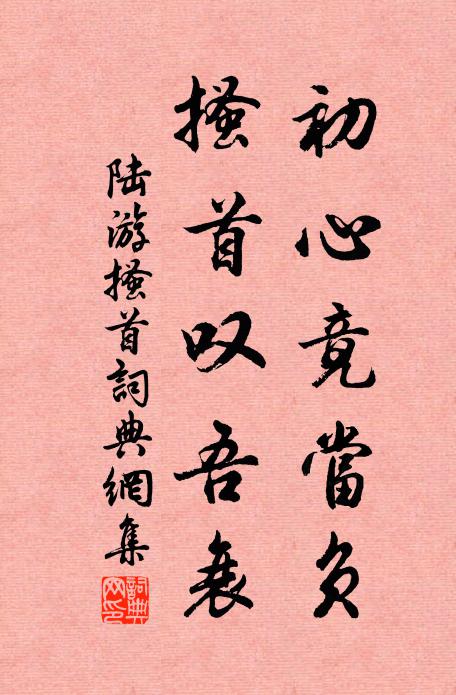 初心竟當負
搔首叹吾衰
陆游搔首詞典網集
詞典網印